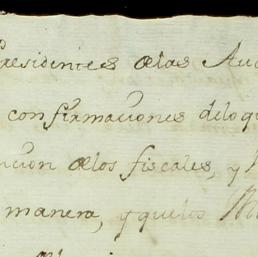 Presidentes delas Au
confirmaciones delo q
ncion delos fiscales, y
manera, y quelos